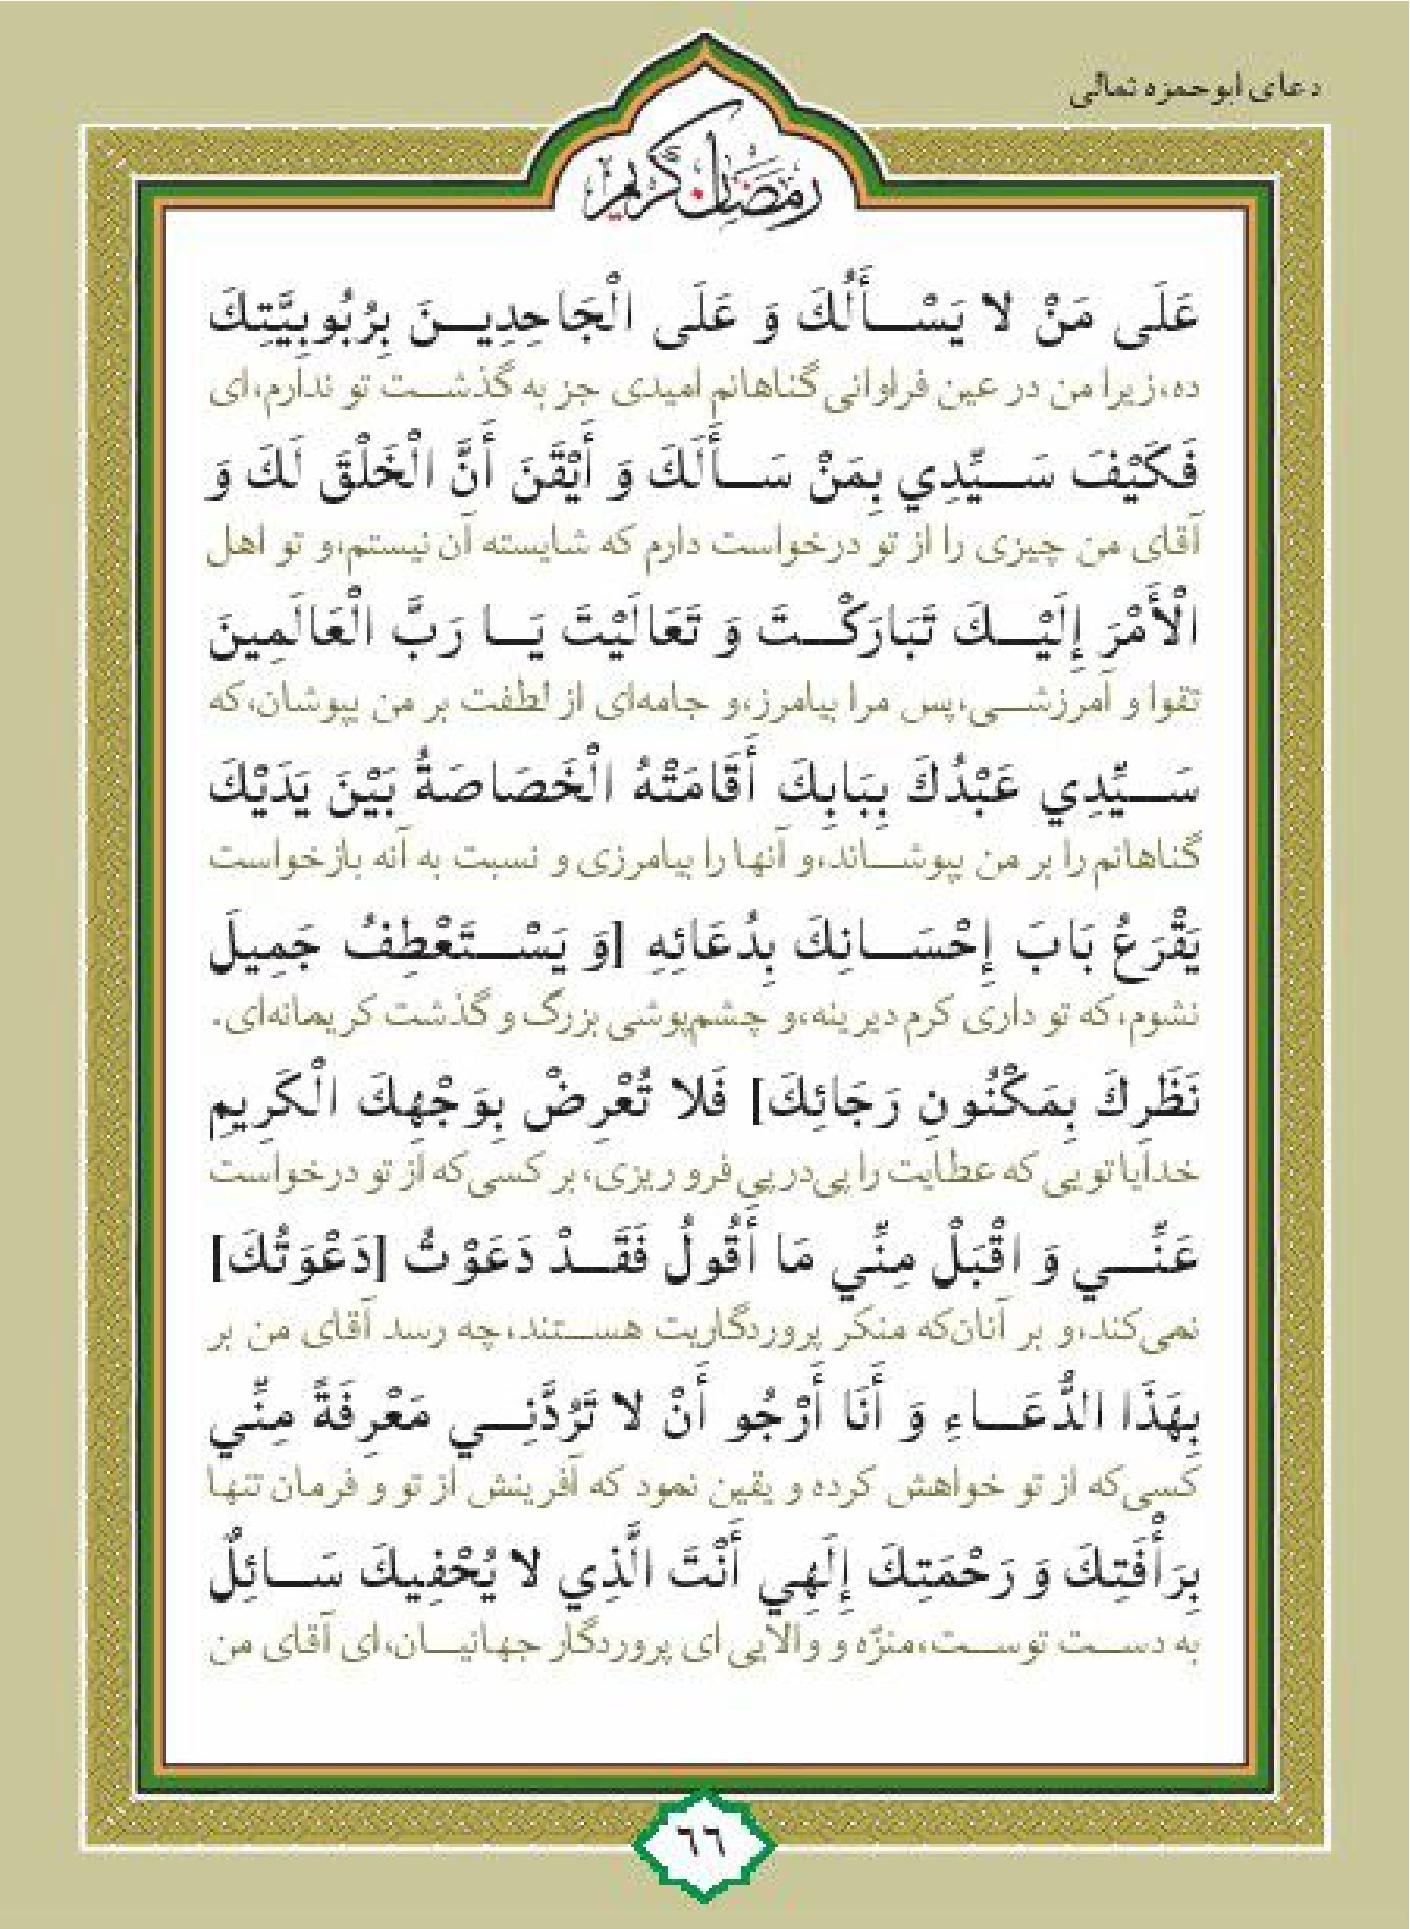 دعای ابوحمزه ثمالی
رمضان کریم
عَلَى مَنْ لا يَسْأَلُكَ وَ عَلَى الْجَاحِدِينَ بِرُبُوبِيَّتِكَ
ده،زیرا من در عین فراوانی گناهانم امیدی جز به گذشت تو ندارم،ای
فَكَيْفَ سَيِّدِي بِمَنْ سَأَلَكَ وَ أَيْقَنَ أَنَّ الْخَلْقَ لَكَ وَ
آقای من چیزی را از تو درخواست دارم که شایسته آن نیستم،و تو اهل
الْأَمْرَ إِلَيْكَ تَبَارَكْتَ وَ تَعَالَيْتَ يَا رَبَّ الْعَالَمِينَ
تقوا و آمرزشی،پس مرا بیامرز،و جامه‌ای از لطفت بر من بپوشان،که
سَيِّدِي عَبْدُكَ بِبَابِكَ أَقَامَتْهُ الْخَصَاصَةُ بَيْنَ يَدَيْكَ
گناهانم را بر من بپوشاند،و آنها را بیامرزی و نسبت به آنه بازخواست
يَقْرَعُ بَابَ إِحْسَانِكَ بِدُعَائِهِ [وَ يَسْتَعْطِفُ جَمِيلَ
نشوم،که تو داری کرم دیرینه،و چشم‌پوشی بزرگ و گذشت کریمانه‌ای.
نَظَرِكَ بِمَكْنُونِ رَجَائِكَ] فَلا تُعْرِضْ بِوَجْهِكَ الْكَرِيمِ
خدایا تویی که عطایت را پی‌درپی فرو ریزی،بر کسی که از تو درخواست
عَنِّي وَ اقْبَلْ مِنِّي مَا أَقُولُ فَقَدْ دَعَوْتُ [دَعَوْتُكَ]
نمی‌کند،و بر آنان‌که منکر پروردگاریت هستند،چه رسد آقای من بر
بِهَذَا الدُّعَاءِ وَ أَنَا أَرْجُو أَنْ لا تَرُدَّنِي مَعْرِفَةً مِنِّي
کسی‌که از تو خواهش کرده و یقین نمود که آفرینش از تو و فرمان تنها
بِرَأْفَتِكَ وَ رَحْمَتِكَ إِلَهِي أَنْتَ الَّذِي لا يُحْفِيكَ سَائِلٌ
به دست توست،منزّه و والایی ای پروردگار جهانیان،ای آقای من
٦٦